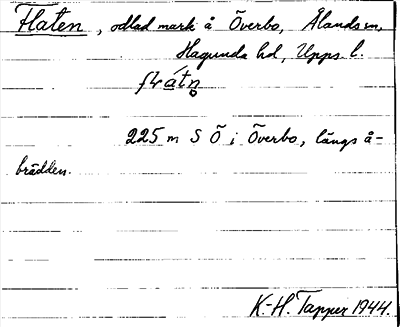 Flaten, odlad mark å Överbo, Ålands sn,
Hagunda hd, Upps. l.
flrátn̥
225 m S Ö i Överbo, längs å-
brädden.
K.-H. Tapper 1944.